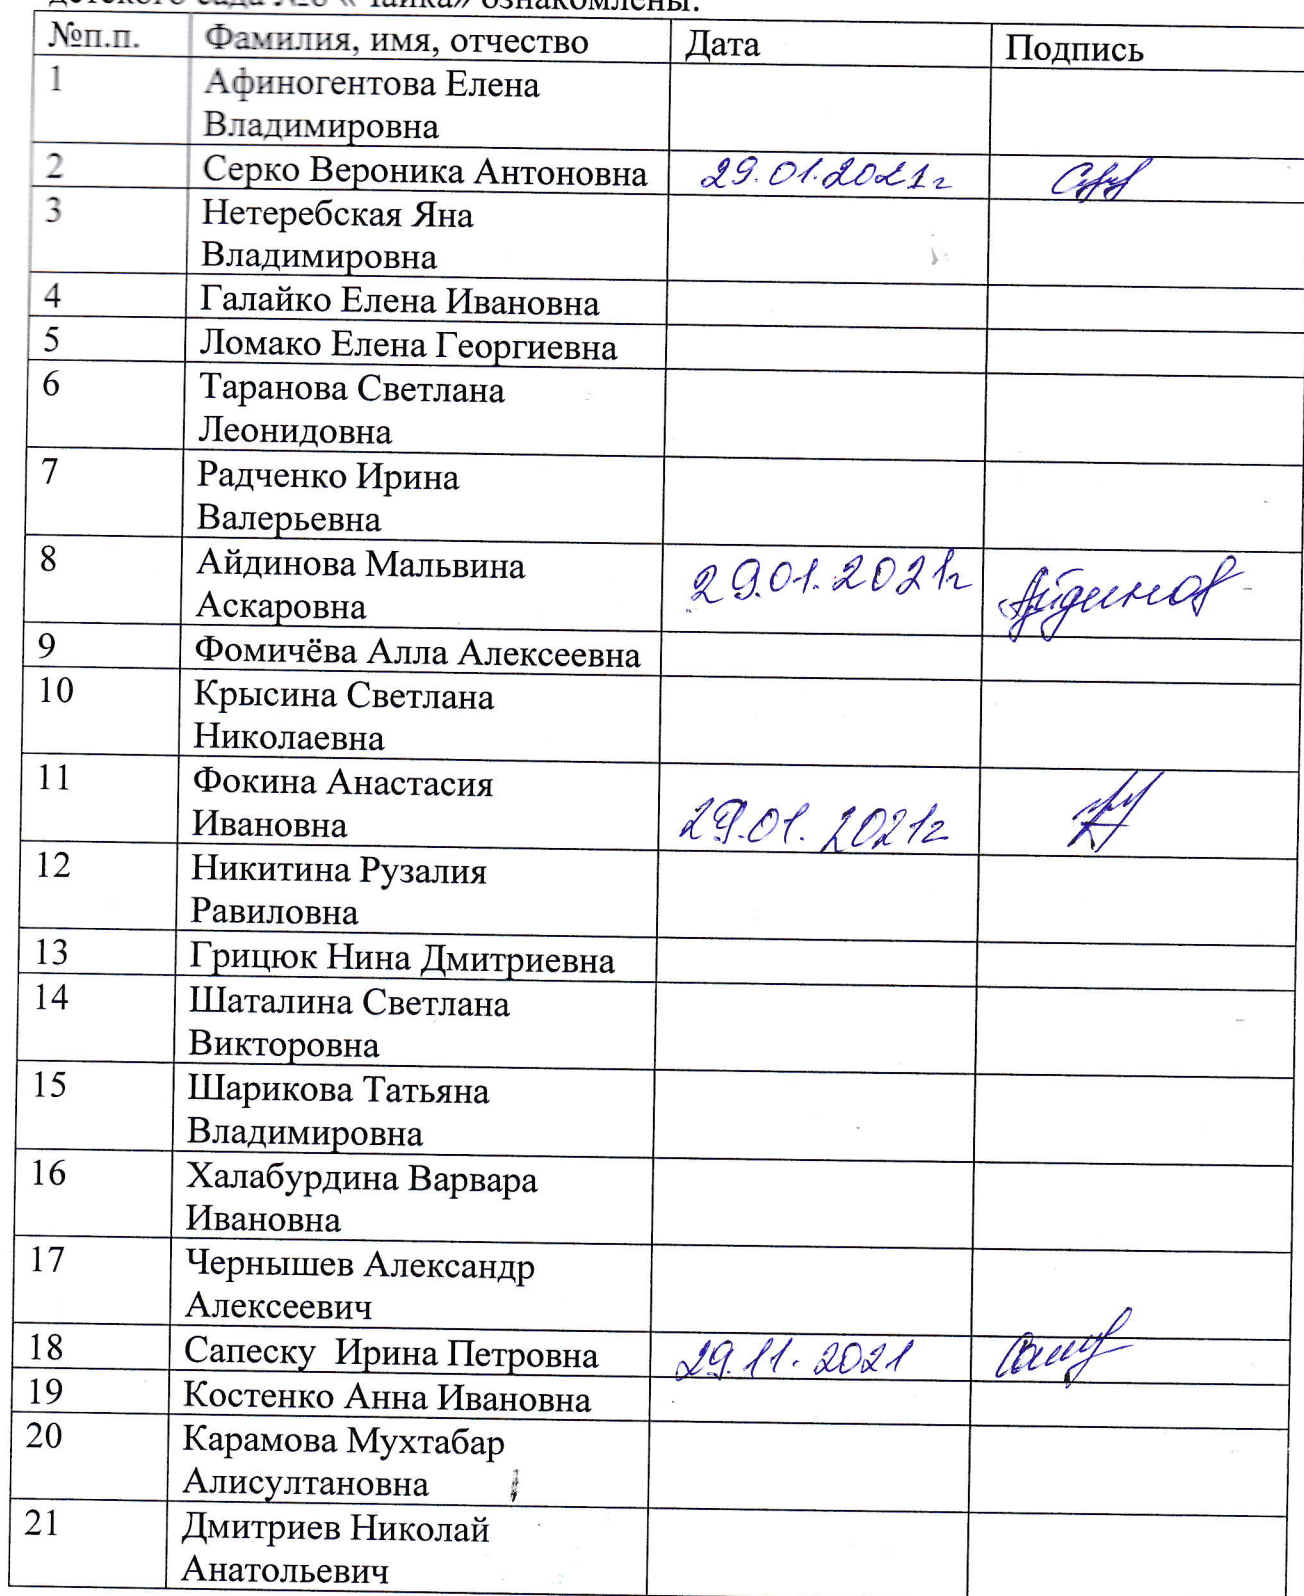 детского сада №8 «Чайка» ознакомлены:
№п.п. Фамилия, имя, отчество Дата Подпись
1 Афиногентова Елена
Владимировна
2 Серко Вероника Антоновна 29.01.2021г
3 Нетеребская Яна
Владимировна
4 Галайко Елена Ивановна
5 Ломако Елена Георгиевна
6 Таранова Светлана
Леонидовна
7 Радченко Ирина
Валерьевна
8 Айдинова Мальвина 29.01.2021г Айдинов
Аскаровна
9 Фомичёва Алла Алексеевна
10 Крысина Светлана
Николаевна
11 Фокина Анастасия
Ивановна 29.01.2021г
12 Никитина Рузалия
Равиловна
13 Грицюк Нина Дмитриевна
14 Шаталина Светлана
Викторовна
15 Шарикова Татьяна
Владимировна
16 Халабурдина Варвара
Ивановна
17 Чернышев Александр
Алексеевич
18 Сапеску Ирина Петровна 29.11.2021
19 Костенко Анна Ивановна
20 Карамова Мухтабар
Алисултановна
21 Дмитриев Николай
Анатольевич